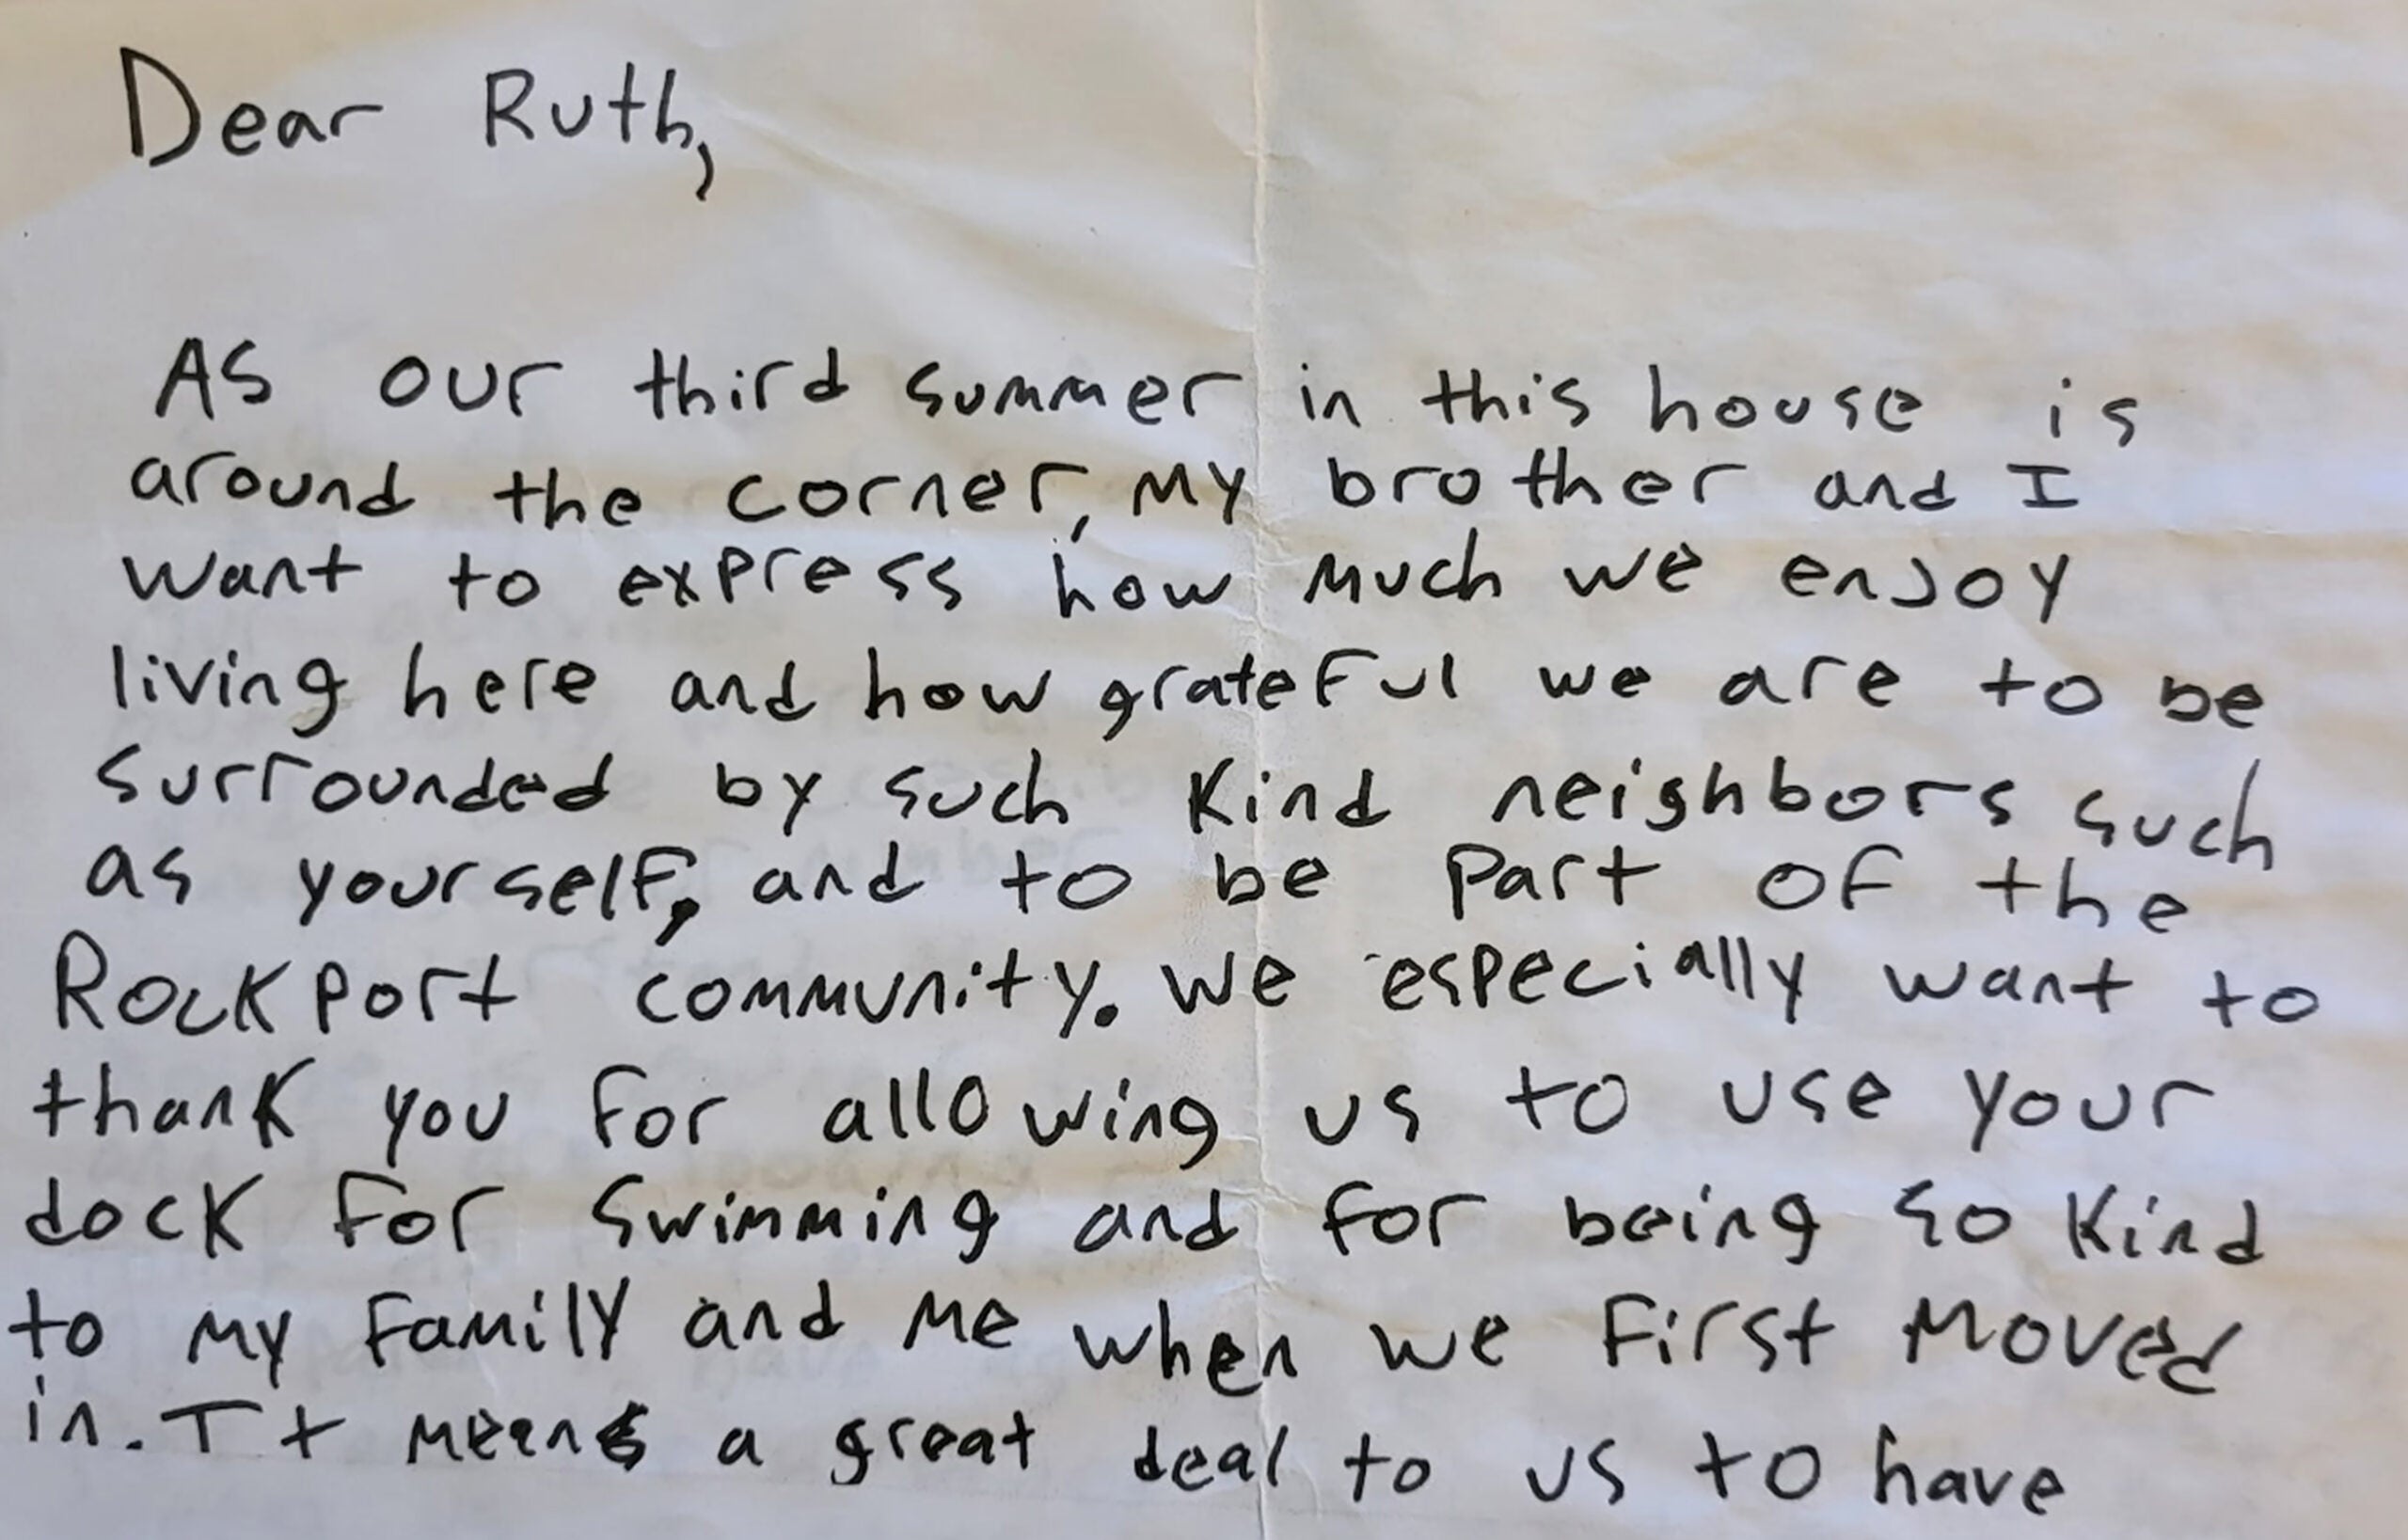 Dear Ruth,
As our third summer in this house is
around the corner, my brother and I
want to express how much we enjoy
living here and how grateful we are to be
surrounded by such kind neighbors such
as yourself, and to be part of the
Rockport community. We especially want to
thank you for allowing us to use your
dock for swimming and for being so kind
to my family and me when we first moved
in. It means a great deal to us to have